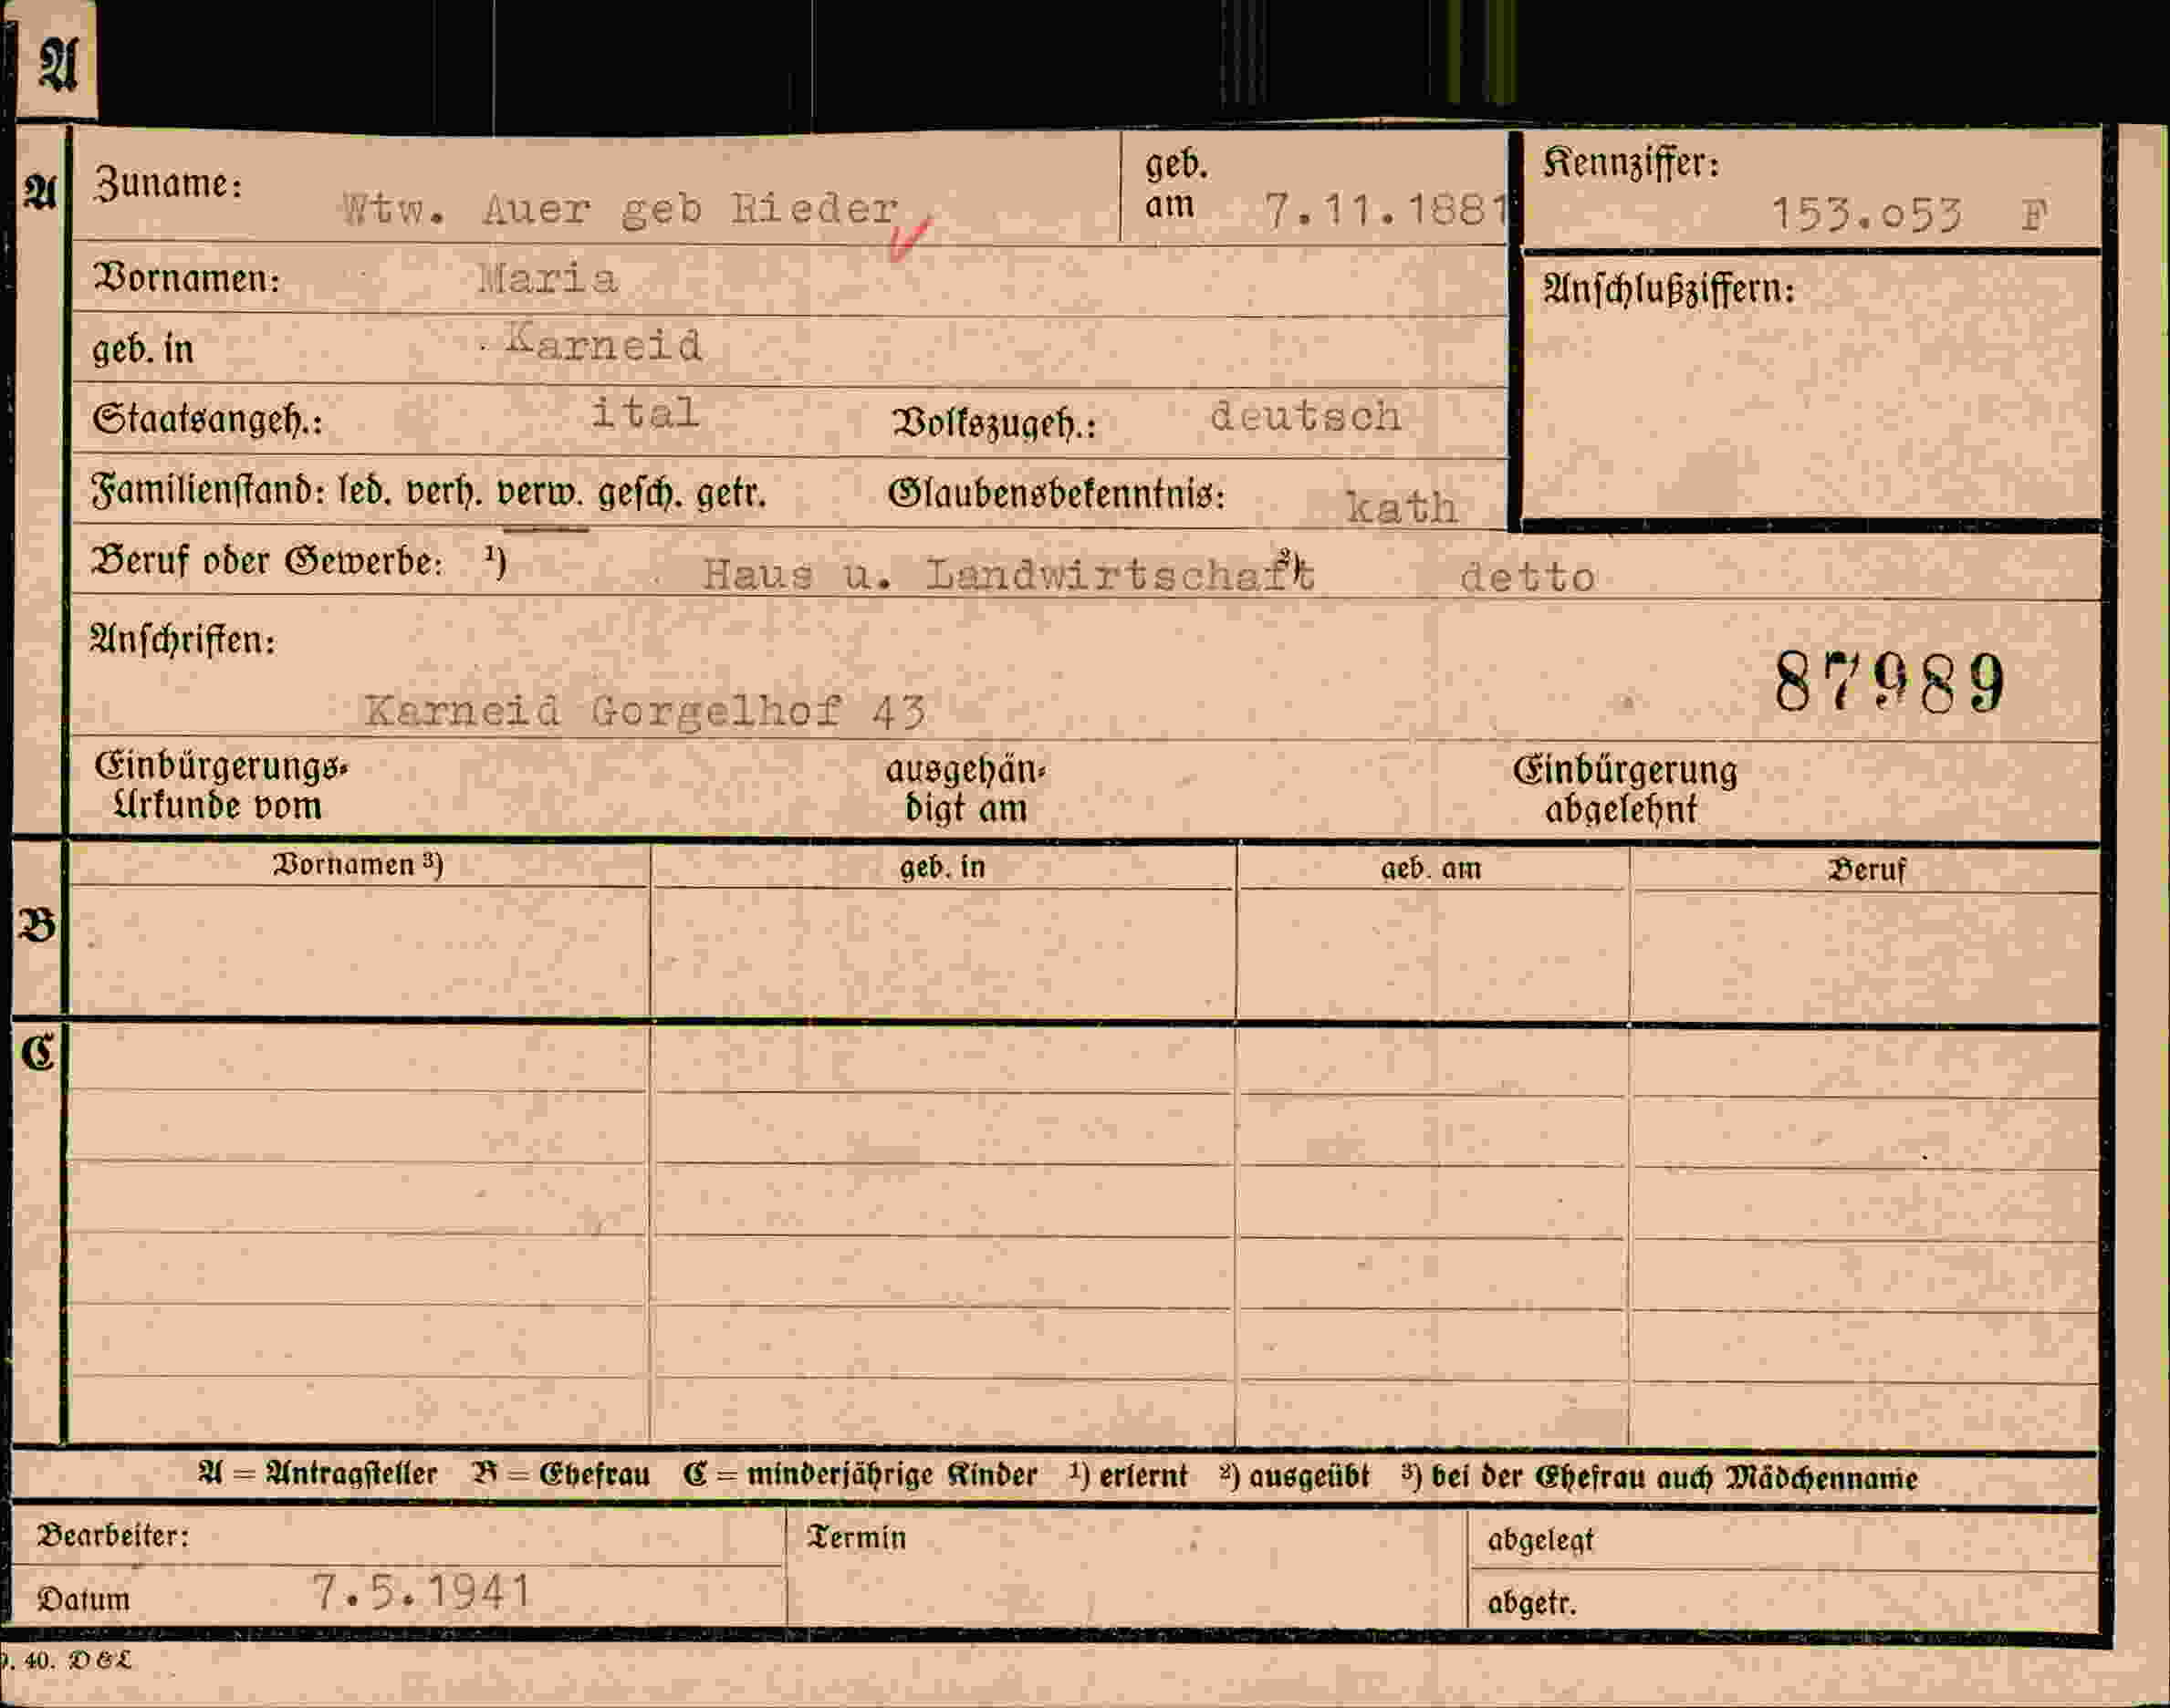 A
A
Zuname: Wtw. Auer geb Rieder
geb. am 7.11.1881
Kennziffer: 153.o53 F
Vornamen: Maria
Anschlußziffern:
geb. in Karneid
Staatsangeh.: ital Volkszugeh.: deutsch
Familienstand: led. verh. verw. gesch. getr. Glaubensbekenntnis: kath
Beruf oder Gewerbe: ¹) Haus u. Landwirtschaft ²) detto
Anschriften:
87989
Karneid Gorgelhof 43
Einbürgerungs- ausgehän- Einbürgerung
Urkunde vom digt am abgelehnt
Vornamen ³) geb. in geb. am Beruf
B
C
A = Antragsteller B = Ehefrau C = minderjährige Kinder ¹) erlernt ²) ausgeübt ³) bei der Ehefrau auch Mädchenname
Bearbeiter: Termin abgelegt
Datum 7.5.1941 abgetr.
. 40. D & L